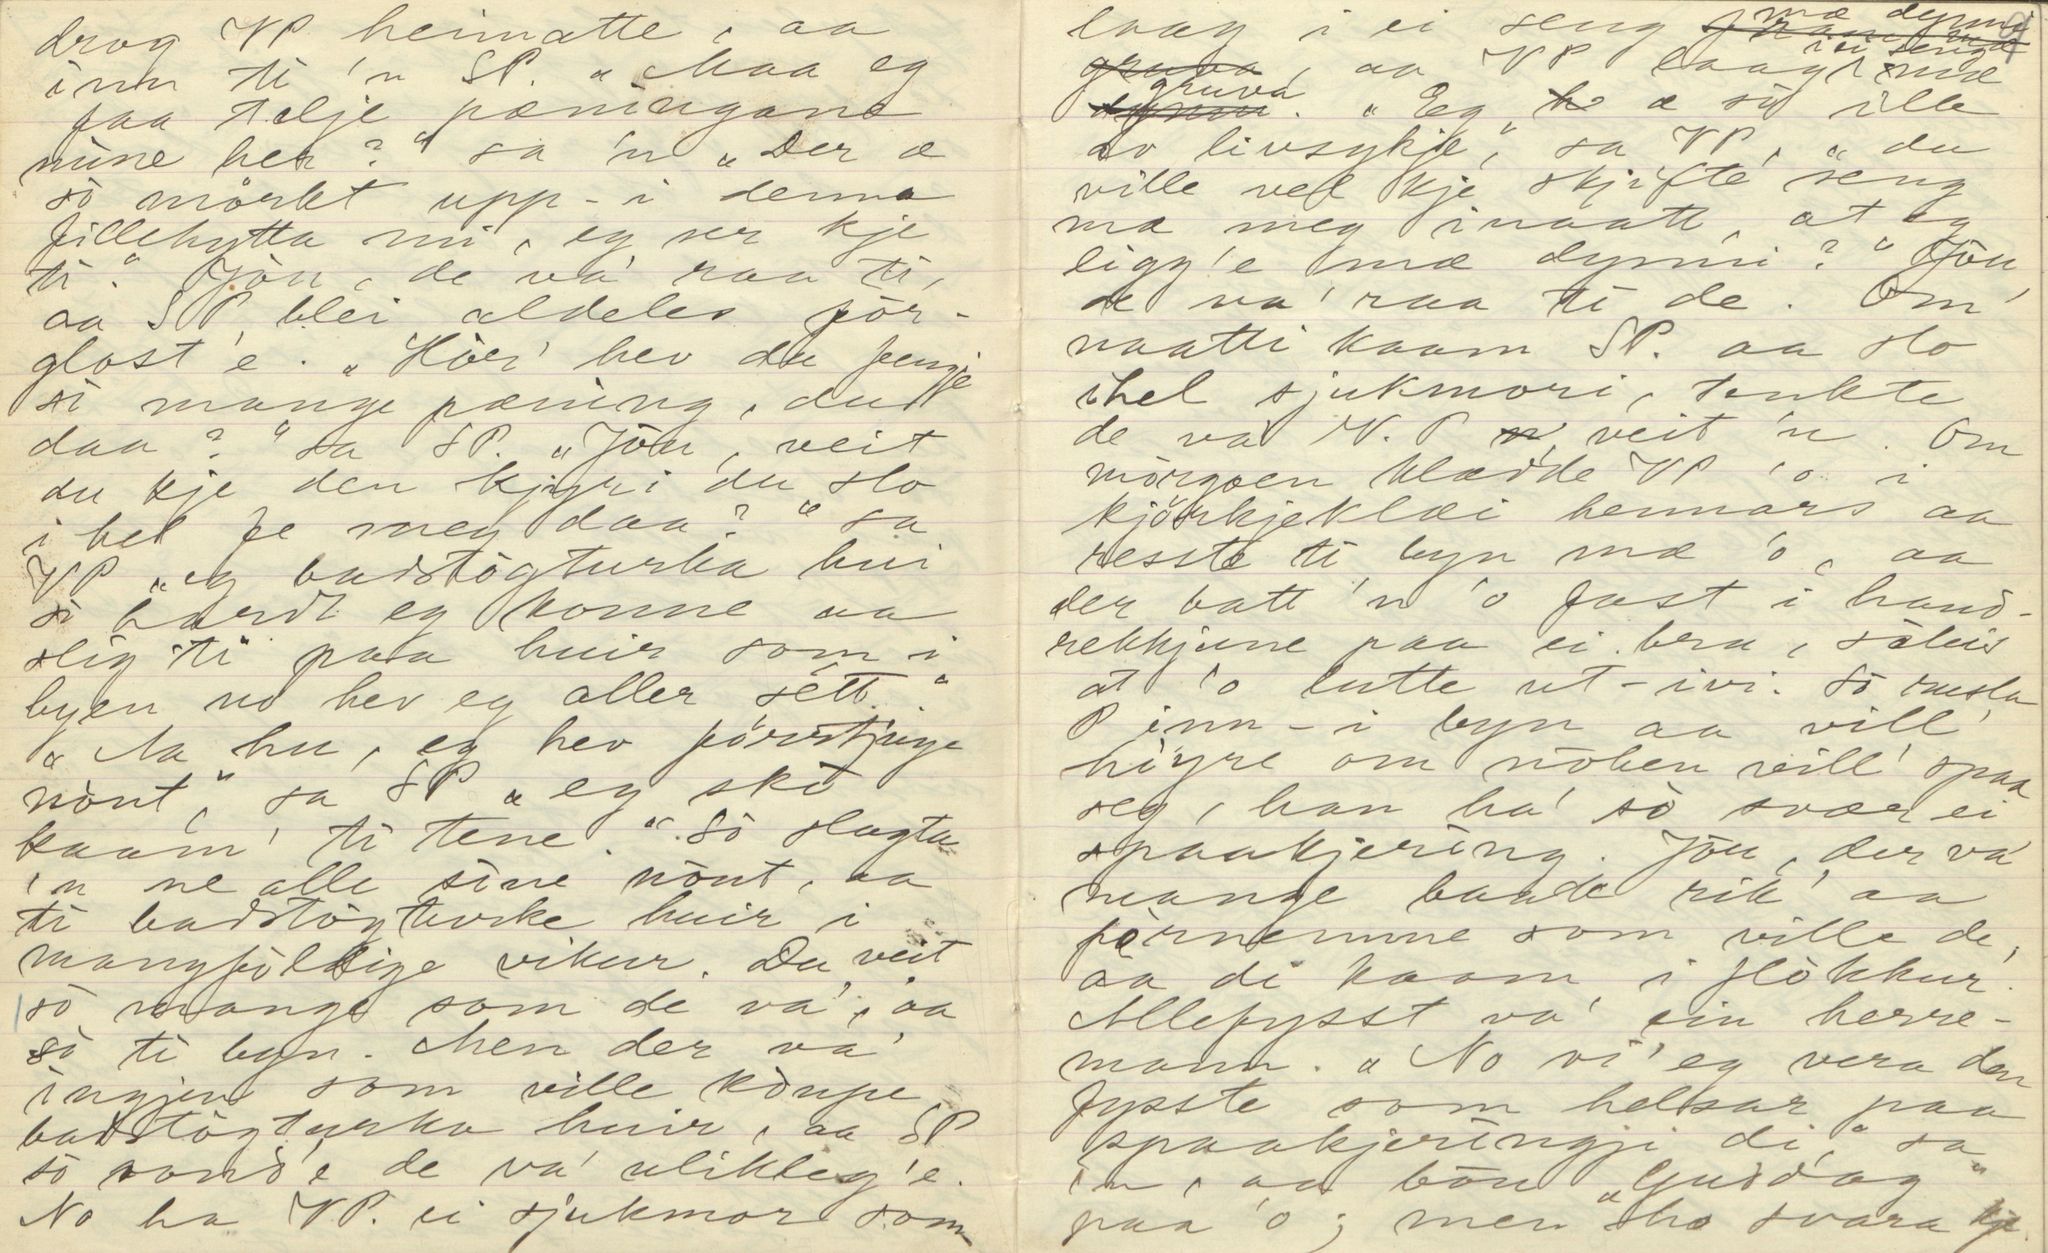 drog VP heimatte, aa
inn ti 'n SP. „Maa eg
faa telje pæningane
mine her?" sa 'n „Der æ
so mörkt upp-i denna
fillehytta mi, eg ser kje
ti." Jöu, de va' raa ti,
aa SP blei aldeles för-
glost'e. „Höri hev du fengje
si mange pæning, du
daa?" sa SP. „Jöu, veit
du kje den kjyri du slo
i hel fe meg daa?" sa
VP „eg badstögturka hui
si hardt eg konne aa
slig ti paa huir som i
byen no hev eg aller sett."
„Aa hu, eg hev förrstjuge
nöut," sa SP „eg sko
kaam' ti tene." So slagta
'n ne alle sine nöut, aa
ti badstögturke huir i
mangföldige vikur. Du veit
so mange som de va', aa
so ti byn. Men der va'
ingjen som ville köupe
badstögturka huir, aa SP
so sond'e de va' ulikleg'e.
No ha VP. ei sjukmor som
laag i ei seng mæ dynni
gruva, aa VP laag i ei seng mæ
gruva. „Eg æ so ille
av livsykje," sa VP, „du
ville vel kje skjifte seng
mæ meg inaatt, at eg
ligg'e mæ dynni?" Jöu
de va' raa ti de. Om
naatti kaam SP. aa slo
ihel sjukmori, tenkte
de va' N. P veit 'n. Om
mörgoen klædde VP 'o i
kjörkjeklæi hennars aa
resste ti byn mæ 'o, aa
der batt 'n 'o fast i hand-
rekkjune paa ei bru, söleis
at 'o lutte ut-ivi. So rusla
P inn-i byn aa vill'
höyre om nöken vill' spaa
seg, han ha' so svær ei
spaakjering. Jöu, der va'
mange baade rik' aa
förnemme som ville de,
aa di kaam i flökkur.
Allefysst va' ein herre-
mann. „No vi' eg vera den
fysste som helsar paa
spaakjeringji di," sa
'n, aa böu „Guddag"
paa 'o; men ho svara kje.